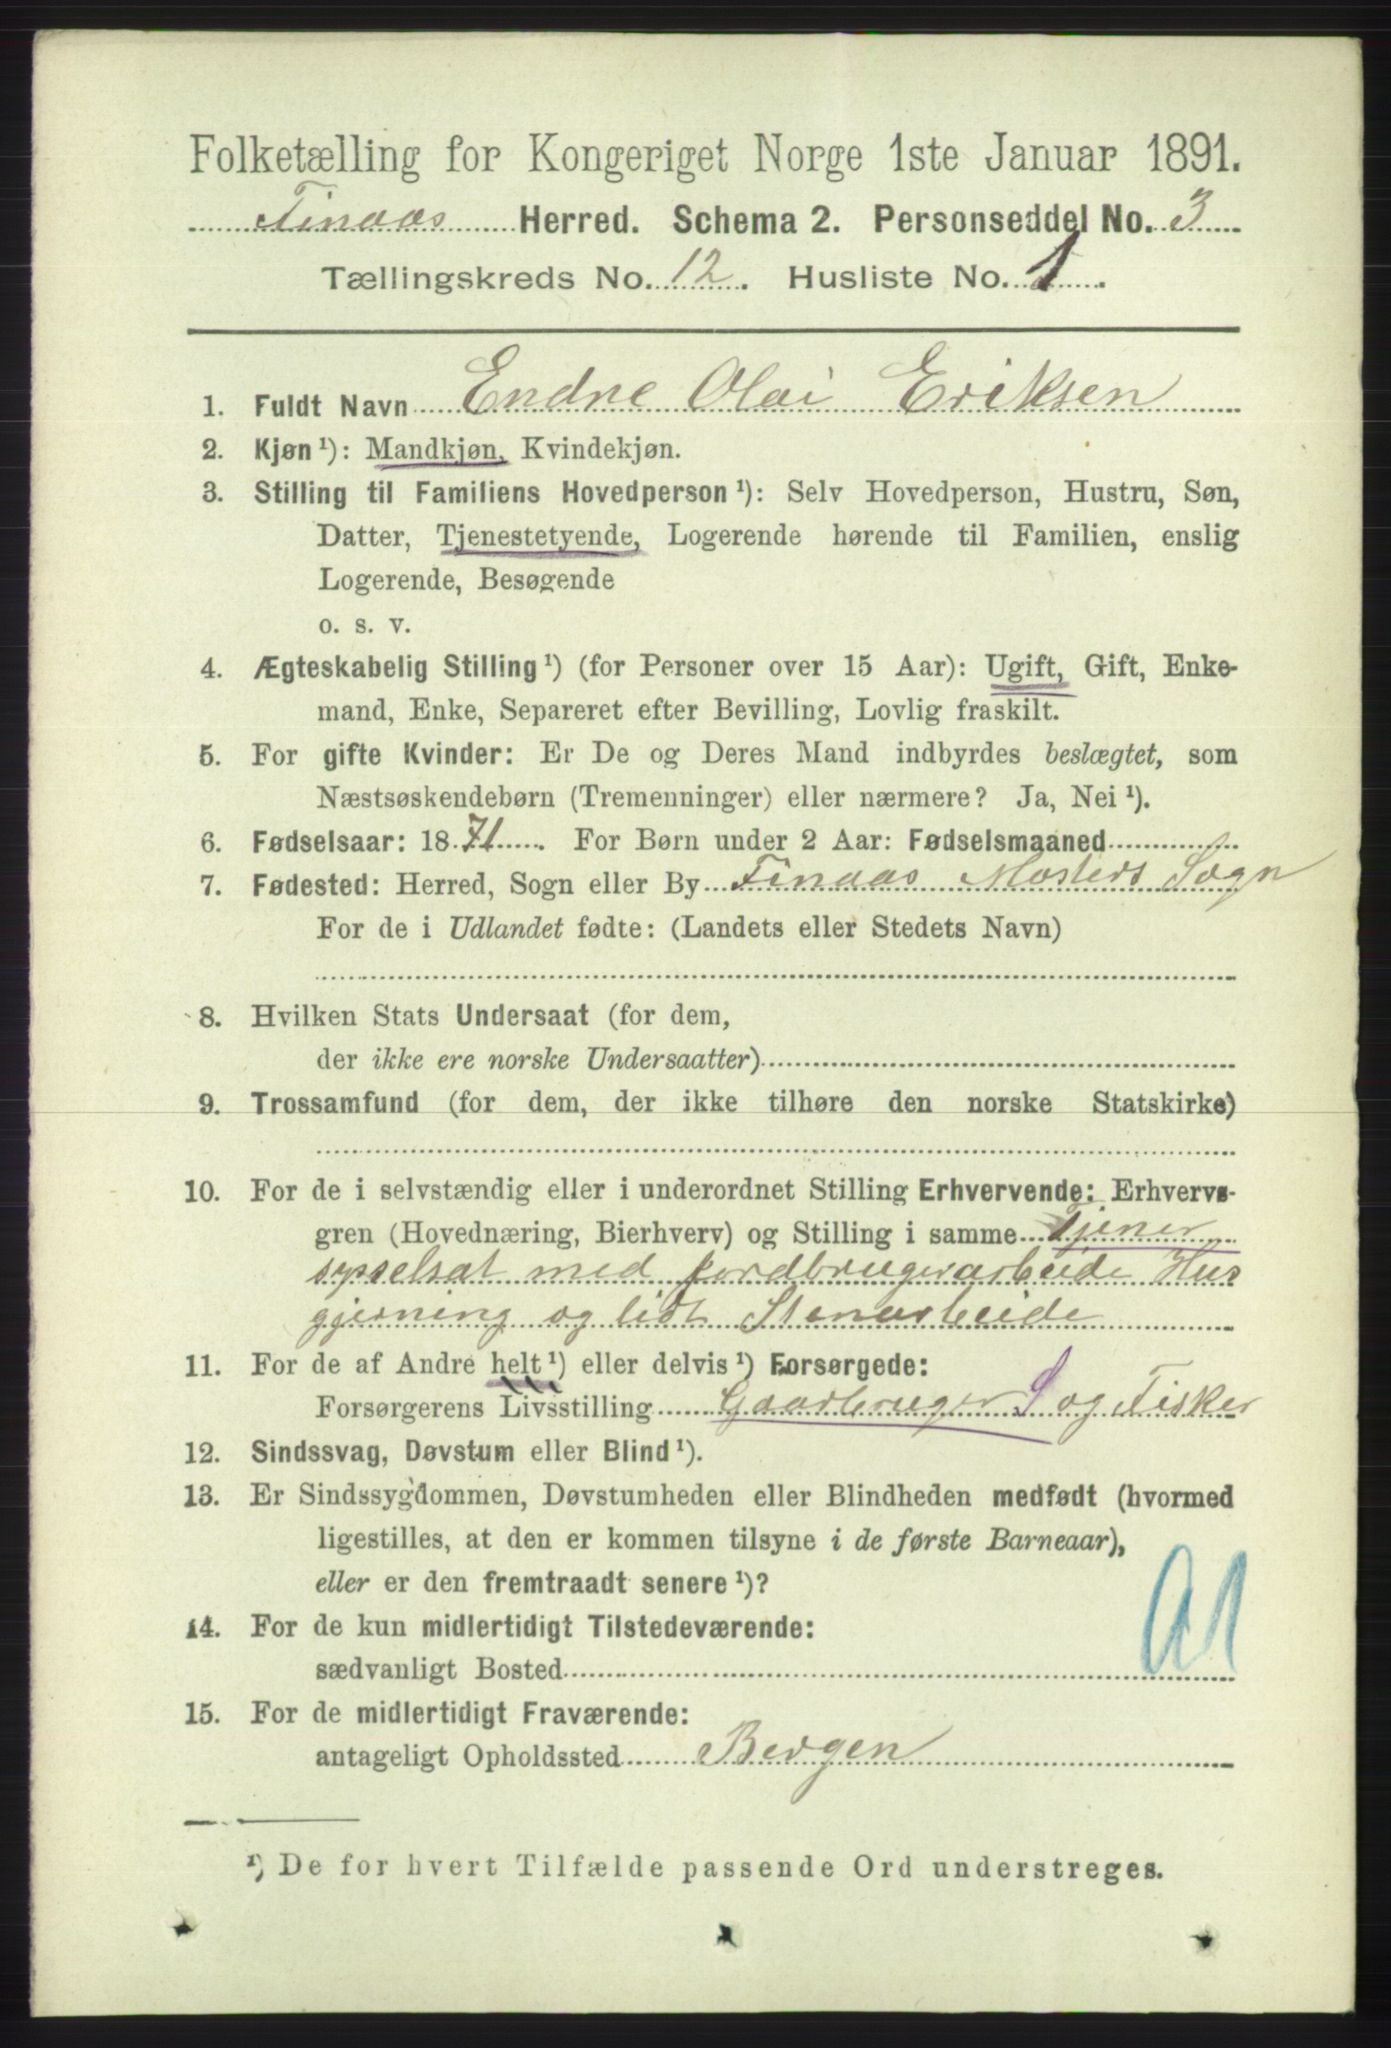 Folketælling for Kongeriget Norge 1ste Januar 1891.
Finaas Herred. Schema 2. Personseddel No. 3
Tællingskreds No. 12. Husliste No. 1.
1. Fuldt Navn Endre Olai Eriksen
2. Kjøn ¹): Mandkjøn, Kvindekjøn.
3. Stilling til Familiens Hovedperson ¹): Selv Hovedperson, Hustru, Søn,
Datter, Tjenestetyende, Logerende hørende til Familien, enslig
Logerende, Besøgende
o. s. v.
4. Ægteskabelig Stilling ¹) (for Personer over 15 Aar): Ugift, Gift, Enke-
mand, Enke, Separeret efter Bevilling, Lovlig fraskilt.
5. For gifte Kvinder: Er De og Deres Mand indbyrdes beslægtet, som
Næstsøskendebørn (Tremenninger) eller nærmere? Ja, Nei ¹).
6. Fødselsaar: 1871. For Børn under 2 Aar: Fødselsmaaned
7. Fødested: Herred, Sogn eller By Finaas Mosters Sogn
For de i Udlandet fødte: (Landets eller Stedets Navn)
8. Hvilken Stats Undersaat (for dem,
der ikke ere norske Undersaatter)
9. Trossamfund (for dem, der ikke tilhøre den norske Statskirke)
10. For de i selvstændig eller i underordnet Stilling Erhvervende: Erhvervs-
gren (Hovednæring, Bierhverv) og Stilling i samme Tjener
sysselsat med jordbrugerarbeide Hus
gjerning og lidt Stenarbeide
11. For de af Andre helt ¹) eller delvis ¹) Forsørgede:
Forsørgerens Livsstilling Gaarbruger S og Fisker
12. Sindssvag, Døvstum eller Blind ¹).
13. Er Sindssygdommen, Døvstumheden eller Blindheden medfødt (hvormed
ligestilles, at den er kommen tilsyne i de første Barneaar),
eller er den fremtraadt senere ¹)?
14. For de kun midlertidigt Tilstedeværende:
sædvanligt Bosted
15. For de midlertidigt Fraværende:
antageligt Opholdssted Bergen
¹) De for hvert Tilfælde passende Ord understreges.